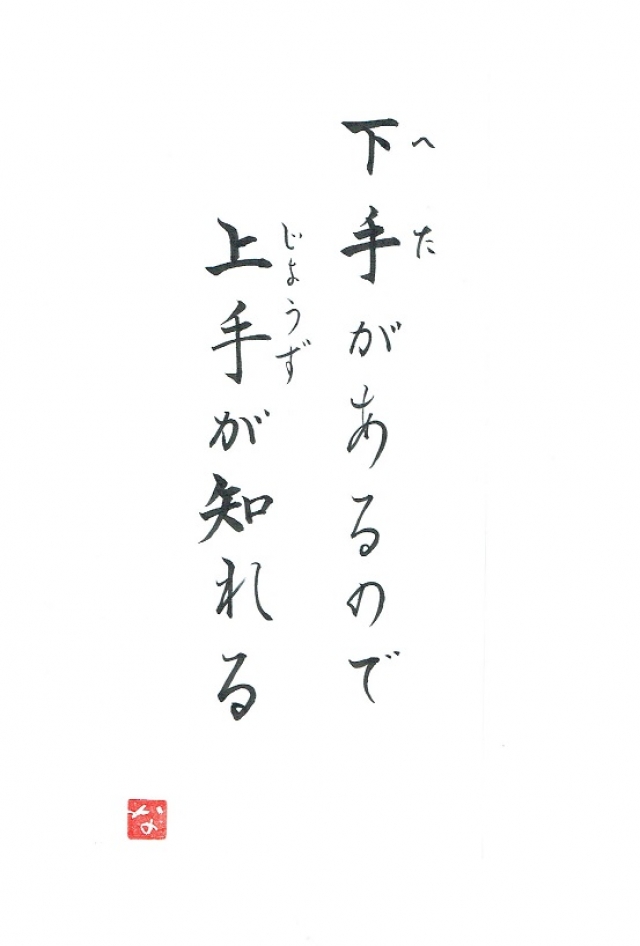 下手があるので
へた
上手が知れる
じょうず
な